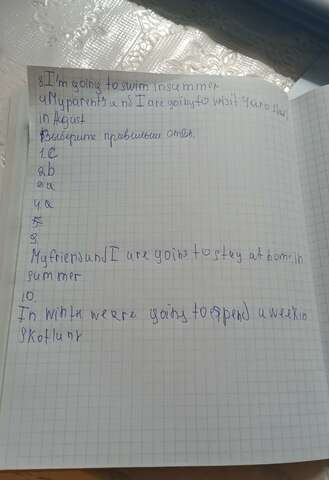 3 I'm going to swim in summer
4 My parents and I are going to visit
in August
Выберите правильный ответ.
1. C
2 b
3 a
4. a
5
9.
My friend and I are going to stay at home in
summer
10.
In winter we are going to spend a week in
Skotland